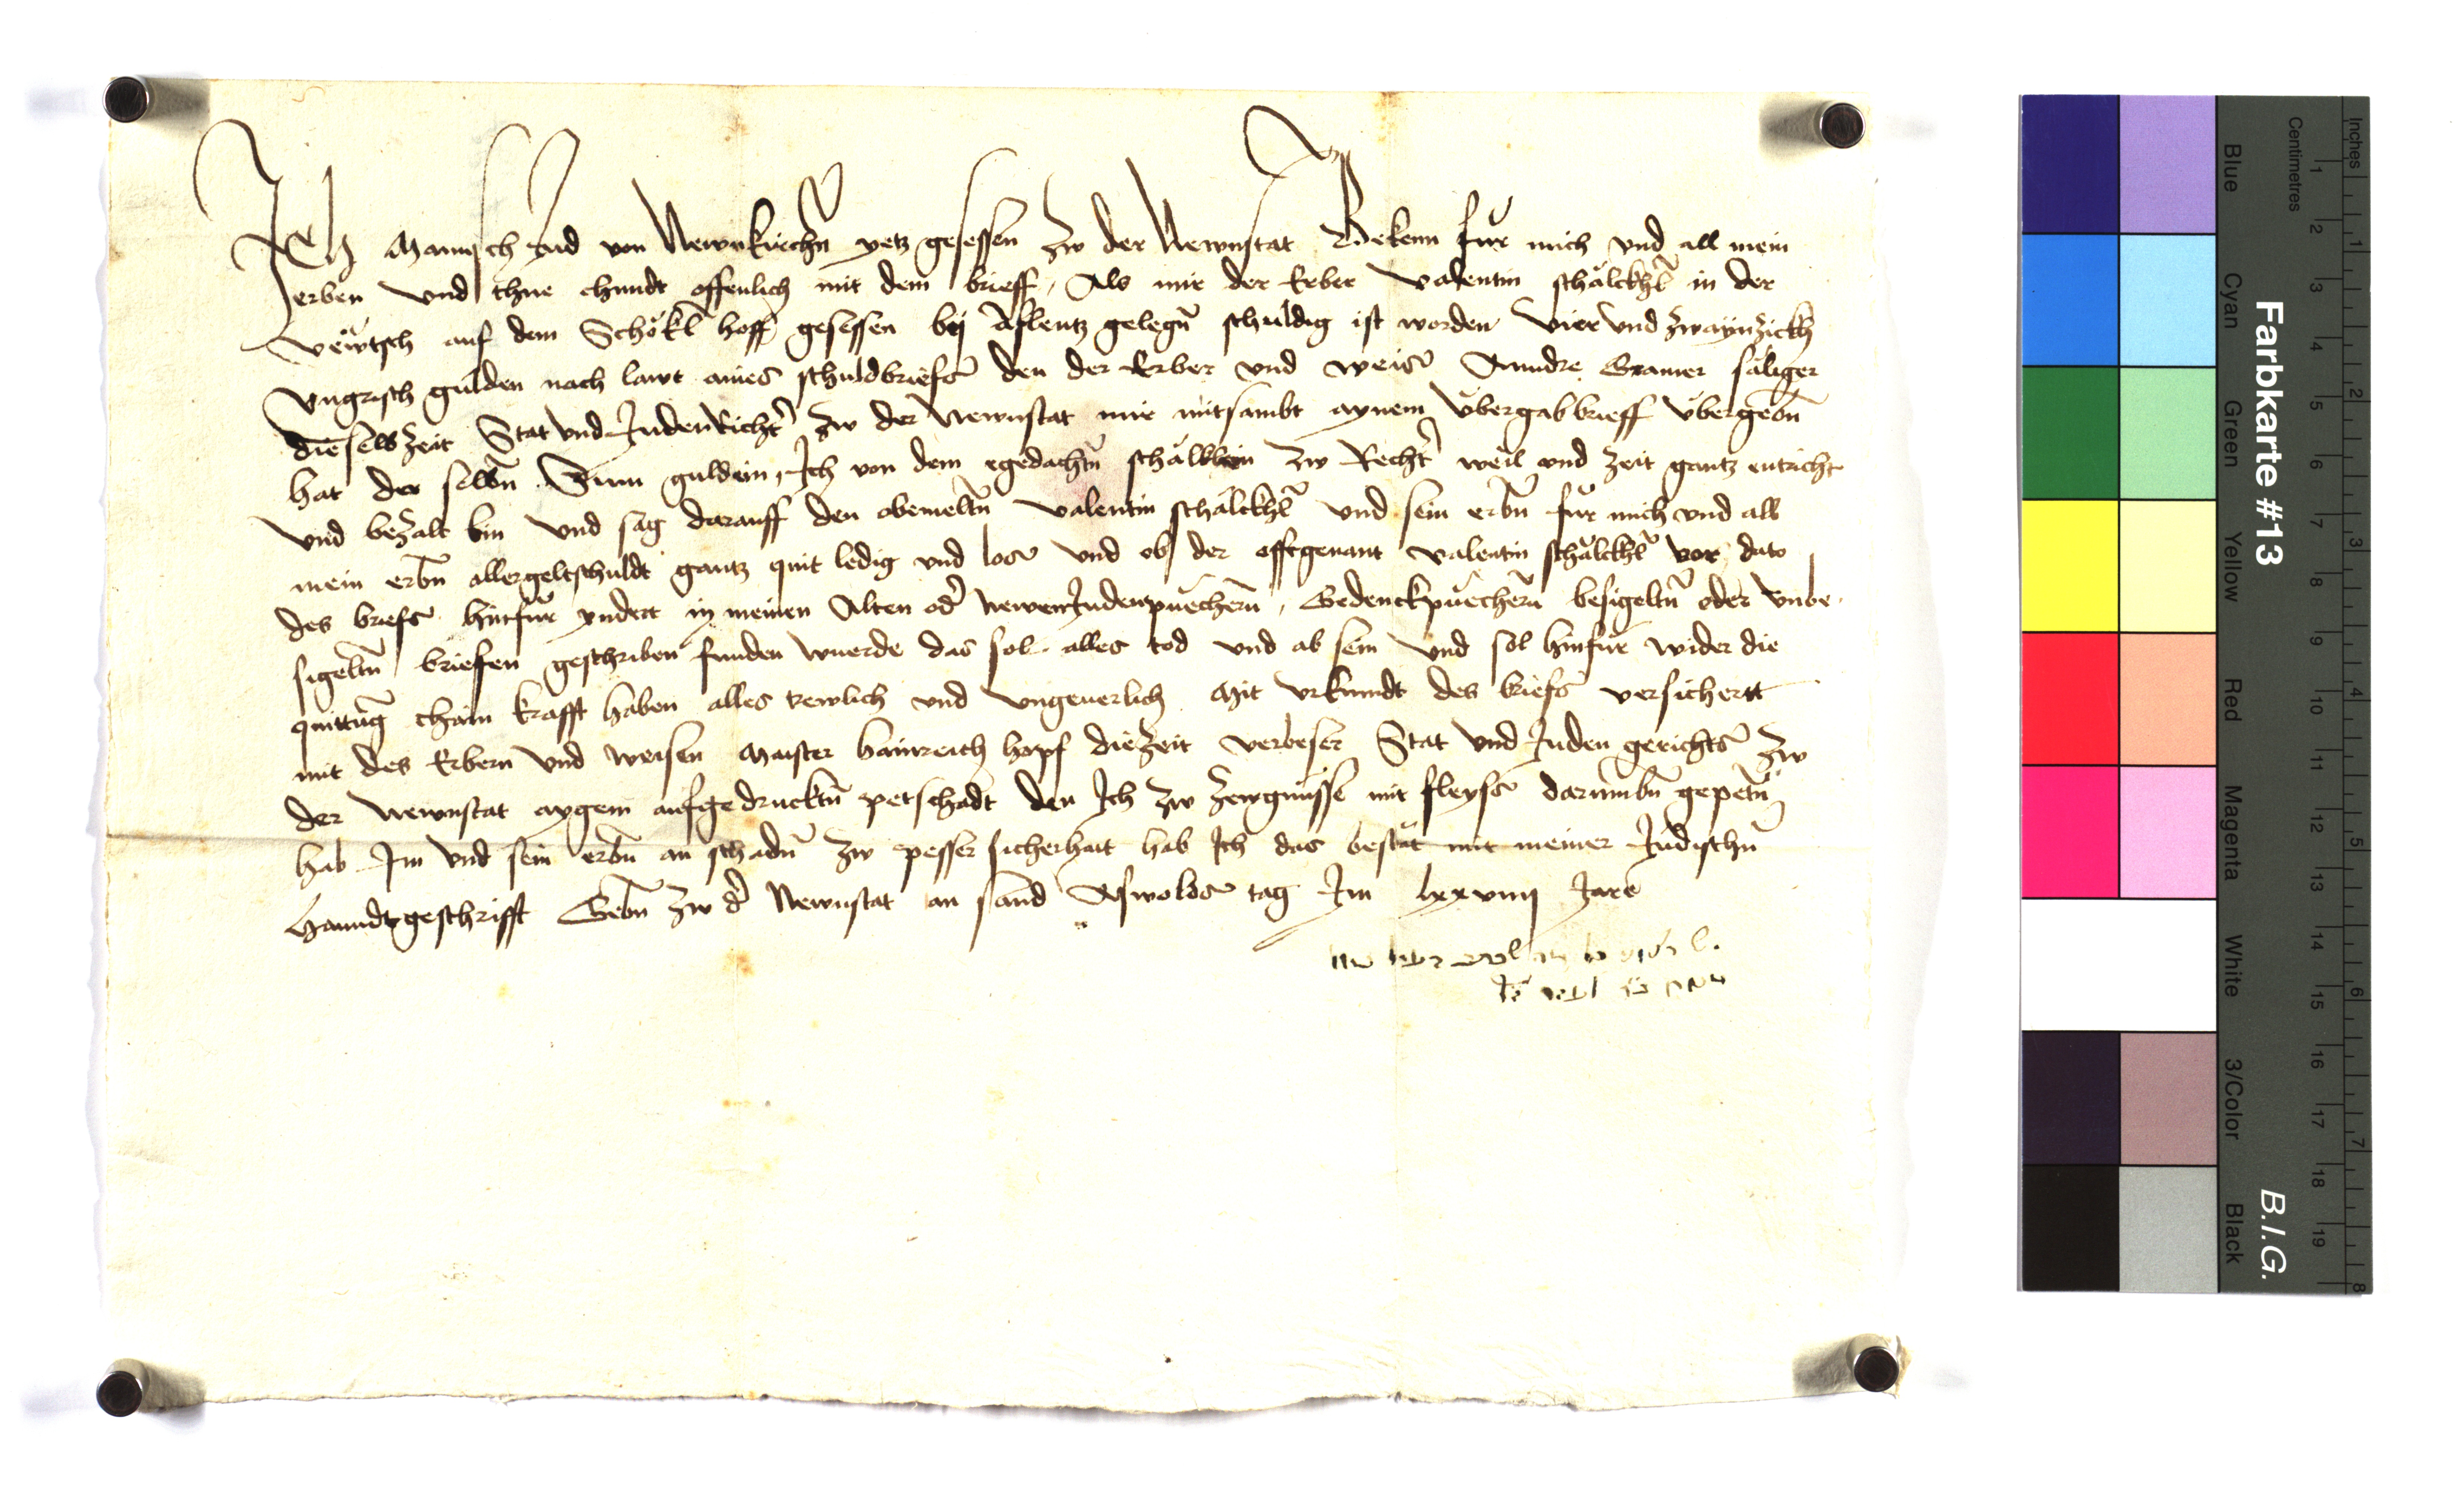 Ich Mannsch Jud von Newnkirchñ yetz gesessen zw der Newnstat Bekenn fŭr mich vnd all mein
erben vnd thue chundt offenlich mit dem brieff, Als mir der Erber valentin schälckhl̃ in der
vëwtsch auf dem Schökl̃ hoff gesessen bey Aflentz gelegñ schuldig ist worden vier vnd zwaynzickh
vngrisch gulden nach lawt aines schuldbriefs den der Erber vnd weis Anndre Cramer säliger
dieselbzeit Stat vnd Judenricht̃ zw der Newnstat mir mitsambt aynem ŭbergabbrieff ŭbergeb̃n
hat der selbñ Sum guldein, Ich von dem egedachtñ zw Recht̃ weil vnd zeit gantz entricht
vnd bezalt bin vnd sag darauff den obemeltñ valentin schälckhl̃ vnd sein erbñ fŭr mich vnd all
mein erbñ aller geltschuldt gantz quit ledig vnd los vnd ob der offtgenant valentin schälckhl̃ vor dato
des briefs hinfŭr yndert in meinen Alten od̃ newen Judenpŭecherñ, Gedenckpŭecherñ besigeltñ oder vnbe
sigeltñ brieffen geschriben funden wuerde das sol alles tod vnd ab sein vnd sol hinfŭr wider die
quittũg chain krafft haben alles trewlich vnd vngeuerlich Mit vrkundt des briefs versichertt
mit des Erbern vnd weisen Maister hainreich hopf die zeit verbeser Stat vnd Juden gerichts zw
der Newnstat aygem aufgedrucktñ petschadt den Ich zw zewgnŭsse mit fleyss darumbñ gepetñ
hab Im vnd sein erbñ an schadñ zw pesser sicherhait hab Ich das bestät mit meiner Jŭdischñ
hanndtgeschrifft Gebñ zw d̃ Newnstat an sand Oswolds tag Im lxxviiij Jare
Farbkarte #13
B.I.G.
Inches
Centimetres
1 2 3 4 5 6 7 8
1 2 3 4 5 6 7 8 9 10 11 12 13 14 15 16 17 18 19
Blue
Cyan
Green
Yellow
Red
Magenta
White
3/Color
Black